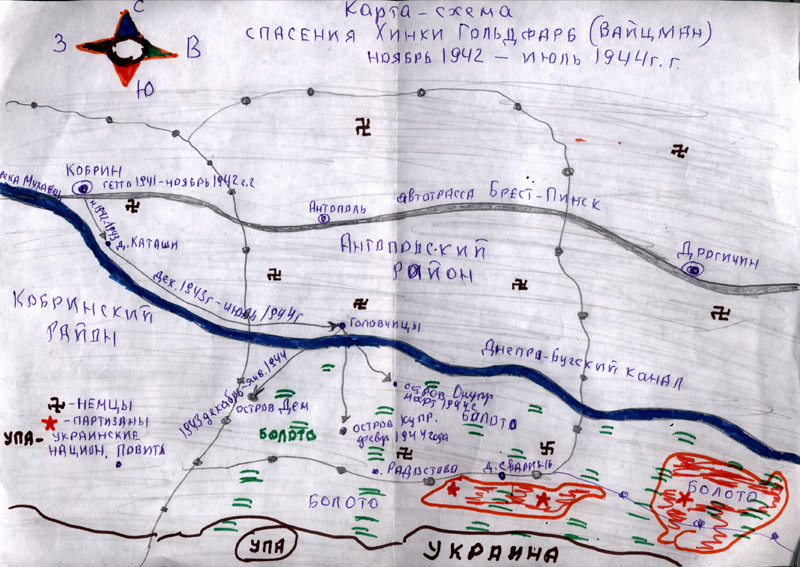 Карта-схема
спасения Хинки Гольдфарб (Вайцман)
ноябрь 1942 – июль 1944 г.г.
С
З
В
Ю
Кобрин
река Мухавец
гетто 1941 – ноябрь 1942 г.г
автотрасса Брест-Пинск
Антополь
д. Каташи
Антопольский
район
Дрогичин
дек. 1943г – июль 1944г
Кобринский
район
Головчицы
Днепро-Бугский канал
1943 декабрь янв. 1944
остров Дем
остров
март 1944г
остров
1944 года
болото
болото
-немцы
-партизаны
УПА- украинские
национ.
Радостово
д. Сварынь
болото
болото
УПА
Украина